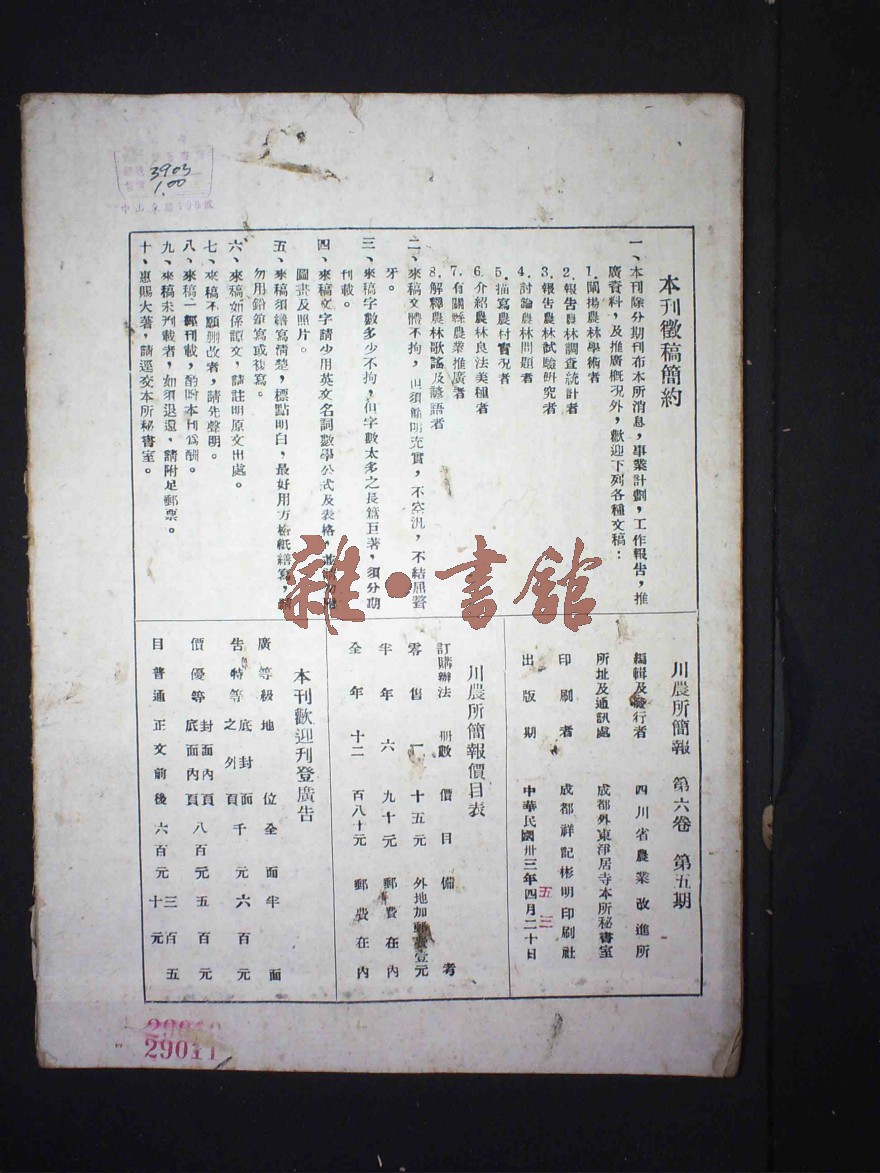 3903
1.00
本刊徵稿簡約
一、本刊除分期刊布本所消息，事業計劃，工作報告，推
廣資料，及推廣概況外，歡迎下列各種文稿：
1.闡揚農林學術者
2.報告農林調查統計者
3.報告農林試驗研究者
4.討論農林問題者
5.描寫農村實況者
6.介紹農林良法美種者
7.有關縣農業推廣者
8.解釋農林歌謠及諺語者
二、來稿文體不拘，但須簡明充實，不空汎，不結屈聱
牙。
三、來稿字數多少不拘，但字數太多之長篇巨著，須分期
刊載。
四、來稿文字請少用英文名詞數學公式及表格，
圖畫及照片。
五、來稿須繕寫清楚，標點明白，最好用方格紙繕寫，
勿用鉛筆寫或複寫。
六、來稿如係譯文，請註明原文出處。
七、來稿不願刪改者，請先聲明。
八、來稿一經刊載，酌贈本刊為酬。
九、來稿未刊載者，如須退還，請附足郵票。
十、惠賜大著，請逕交本所秘書室。
雜·書館
川農所簡報 第六卷 第五期
編輯及發行者 四川省農業改進所
所址及通訊處 成都外東淨居寺本所秘書室
印刷者 成都祥記彬明印刷社
出版期 中華民國卅三年四月二十日
五 三
川農所簡報價目表
訂購辦法 冊數 價目 備考
零售 一 十五元 外地加郵費壹元
半年 六 九十元 郵費在內
全年 十二 百八十元 郵費在內
本刊歡迎刊登廣告
廣 等級 地位 全面 半面
告 特等 底封面之外頁 千元 六百元
價 優等 封面內頁底面內頁 八百元 五百元
目 普通 正文前後 六百元 三百五十元
29011